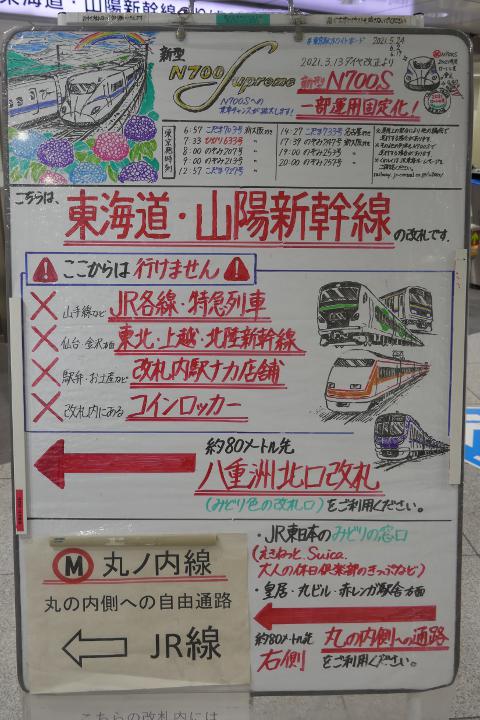 東海道・山陽新幹線
#東京駅ホワイトボード 2021.5.24
新型
N700Supreme
N700Sへの
乗車チャンスが拡大します!
2021.3.13ダイヤ改正より
新型N700S
一部運用固定化!
東京発時刻
6:57 こだま703号 新大阪ゆき
7:33 ひかり633号 〃
8:00
9:00 のぞみ213号 〃
12:57 こだま727号 〃
14:27 こだま733号 名古屋ゆき
17:39 のぞみ247号 新大阪ゆき
19:00 のぞみ253号 〃
20:00 のぞみ257号 〃
こちらは、
東海道・山陽新幹線の改札です。
ここからは行けません
山手線など JR各線・特急列車
仙台・金沢方面 東北・上越・北陸新幹線
駅弁・お土産など 改札内駅ナカ店舗
改札内にある コインロッカー
約80メートル先
八重洲北口改札
(みどり色の改札口)をご利用ください。
・JR東日本のみどりの窓口
(えきねっと、Suica、
大人の休日倶楽部のきっぷなど)
・皇居・丸ビル・赤レンガ駅舎方面
約80メートル先 丸の内側への通路
右側 をご利用ください。
M 丸ノ内線
丸の内側への自由通路
JR線
こちらの改札内には